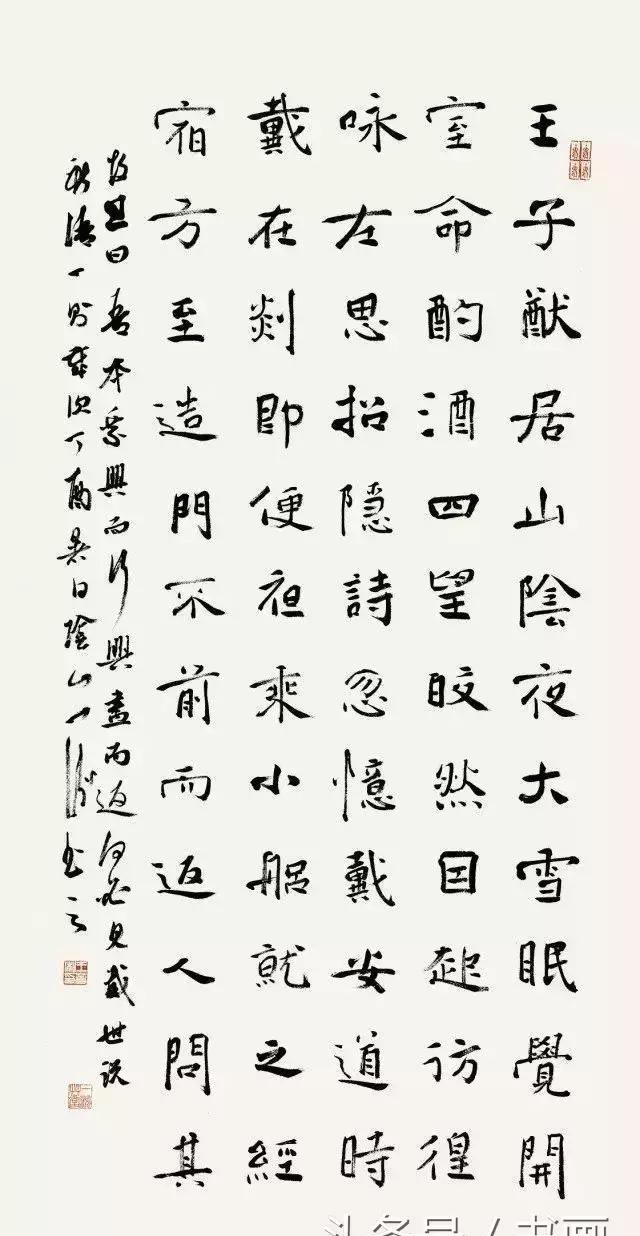 王子猷居山陰夜大雪眠覺開
室命酌酒四望皎然因起彷徨
咏左思招隐詩忽憶戴安道時
戴在剡即便夜乘小船就之經
宿方至造門不前而返人問其
故王曰吾本乘興而行興盡而返何必見戴世説
新語一則歲次丁酉暑日陰山
头条号/书画